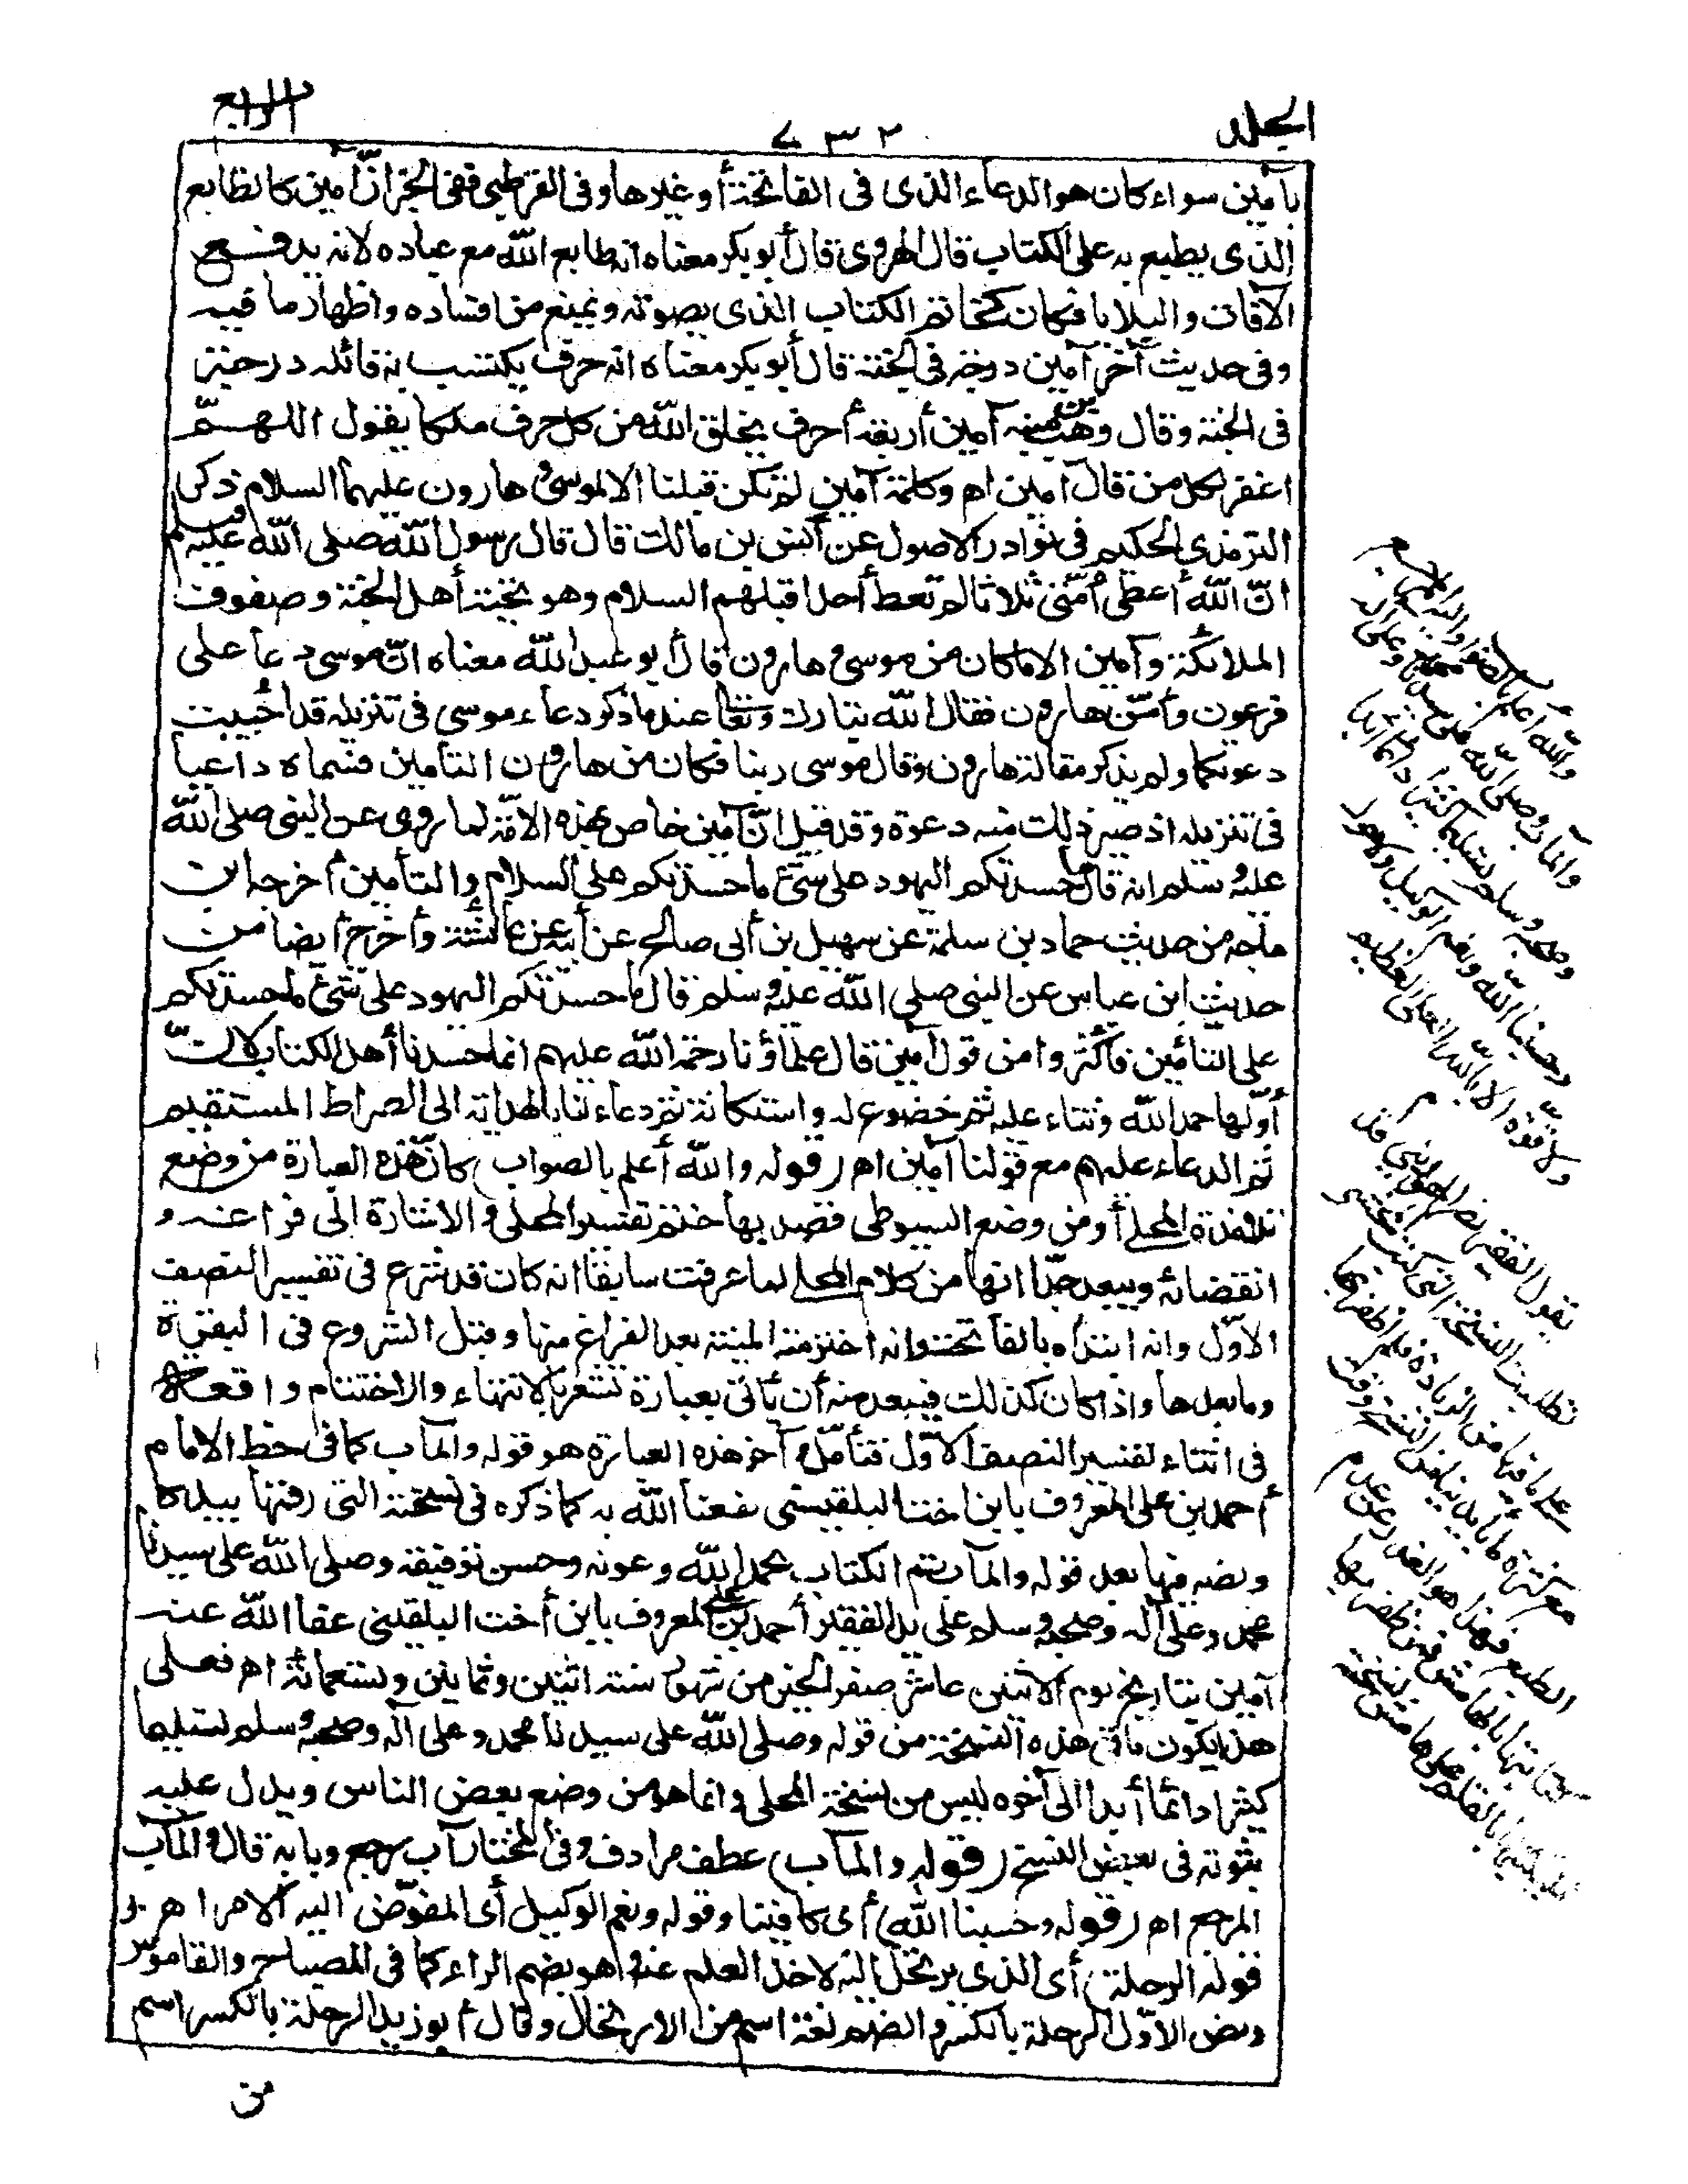 الجلد ٧٣٢ الرابع
بآمين سواء كان هو الدعاء الذى فى الفاتحة أو غيرها وفى القرطبى ففى الخبر انّ آمين كالطابع
الذى يطبع به على الكتاب قال الهروى قال أبو بكر معناه انه طابع الله مع عباده لانه يدفع
الآفات والبلايا فكان كخاتم الكتاب الذى يصونه ويمنع من افساده واظهار ما فيه
وفى حديث آخر آمين درجة فى الجنة قال أبو بكر معناه انه حرف يكتسب به قائله درجة
فى الجنة وقال وهب بن منبه آمين أربعة أحرف يخلق الله من كل حرف ملكا يقول اللهمّ
اغفر لكل من قال آمين اه وكلمة آمين لم تكن قبلنا الا لموسى وهارون عليهما السلام ذكر
الترمذى الحكيم فى نوادر الاصول عن أنس بن مالك قال قال رسول الله صلى الله عليه وسلم
انّ الله أعطى أمّتى ثلاثا لم تعط أحدا قبلهم السلام وهو تحية أهل الجنة وصفوف
الملائكة وآمين الا ما كان من موسى وهارون قال أبو عبد الله معناه انّ موسى دعا على
فرعون وأمّن هارون فقال الله تبارك وتعالى عند ما ذكر دعاء موسى فى تنزيله قد أجيبت
دعوتكما ولم يذكر مقالة هارون وقال موسى ربنا فكان من هارون التأمين فسماه داعيا
فى تنزيله اذ صير ذلك منه دعوة وقد قيل انّ آمين خاص بهذه الامّة لما روى عن النبى صلى الله
عليه وسلم انه قال ما حسدتكم اليهود على شئ ما حسدتكم على السلام والتأمين أخرجه ابن
ماجه من حديث حماد بن سلمة عن سهيل بن أبى صالح عن أبيه عن عائشة وأخرج أيضا من
حديث ابن عباس عن النبى صلى الله عليه وسلم قال ما حسدتكم اليهود على شئ ما حسدتكم
على التأمين فأكثروا من قول آمين قال علماؤنا رحمة الله عليهم انما حسدنا أهل الكتاب لانّ
أوّلها حمد الله وثناء عليه ثم خضوع له واستكانة ثم دعاء لنا بالهداية الى الصراط المستقيم
ثم الدعاء عليهم مع قولنا آمين اه (قوله والله أعلم بالصواب) كانّ هذه العبارة من وضع
تلامذة المحلى أو من وضع السيوطى قصد بها ختم تفسير المحلى والاشارة الى فراغه و
انقضائه ويبعد جدّا انها من كلام المحلى لما عرفت سابقا انه كان قد شرع فى تفسير النصف
الاوّل وانه ابتدأه بالفاتحة وانه اخترمته المنية بعد الفراغ منها وقبل الشروع فى البقرة
وما بعدها واذا كان كذلك فيبعد منه أن يأتى بعبارة تشعر بالانتهاء والاختتام واقعة
فى اثناء تفسير النصف الاوّل فتأمّل وآخر هذه العبارة هو قوله والمآب كما فى خط الامام
أحمد بن على المعروف بابن اخت البلقينى نفعنا الله به كما ذكره فى نسخته التى رقنها بيده كا
ونصه فيها بعد قوله والمآب تم الكتاب بحمد الله وعونه وحسن توفيقه وصلى الله على سيدنا
محمد وعلى آله وصحبه وسلم على يد الفقير أحمد بن على المعروف بابن أخت البلقينى عفا الله عنه
آمين بتاريخ يوم الاثنين عاشر صفر الخير من شهور سنة اثنين وثمانين وتسعمائة اه فعلى
هذا يكون ما فى هذه النسخة من قوله وصلى الله على سيدنا محمد وعلى آله وصحبه وسلم تسليما
كثيرا دائما أبدا الى آخره ليس من نسخة المحلى وانما هو من وضع بعض الناس ويدل عليه
ثبوته فى بعض النسخ (قوله والمآب) عطف مرادف وفى المختار آب رجع وبابه قال والمآب
المرجع اه (قوله وحسبنا الله) أى كافينا وقوله ونعم الوكيل أى المفوّض اليه الامر اه
قوله الرحلة) أى الذى يرتحل اليه لاخذ العلم عنه اهو بضم الراء كما فى المصباح والقاموس
ونص الاوّل الرحلة بالكسر والضم لغة اسم من الارتحال وقال أبو زيد الرحلة بالكسر اسم
من
والله أعلم بالصواب واليه المرجع
والمآب وصلى الله على سيدنا محمد وعلى آله
وصحبه وسلم تسليما كثيرا دائما أبدا
وحسبنا الله ونعم الوكيل ولا حول
ولا قوة الا بالله العلى العظيم